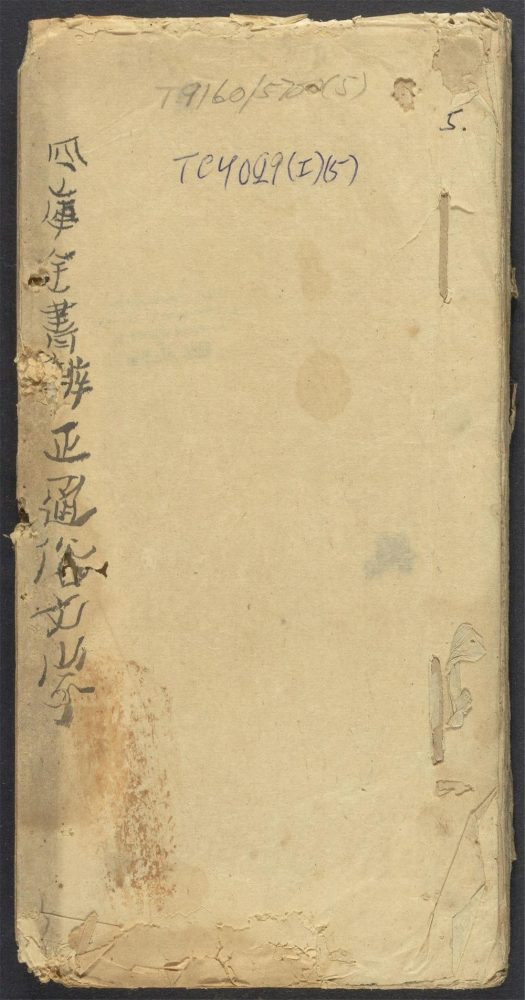 T9160/5700(5)
5.
TC4029(I)(5)
四庫全書辨正通俗文字